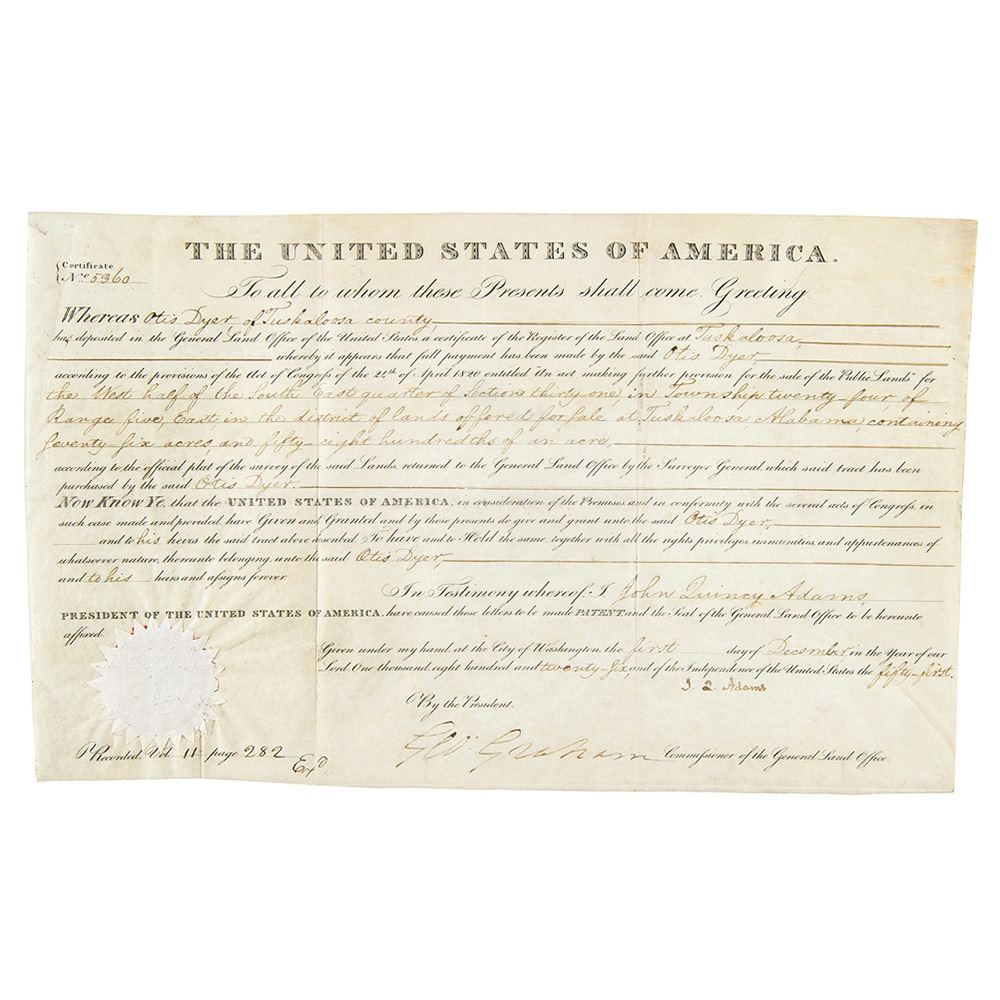 THE UNITED STATES OF AMERICA.
Certificate
No. 5360
To all to whom these Presents shall come, Greeting
Whereas Otis Dyer, of Tuskaloosa county,
has deposited in the General Land Office of the United States a certificate of the Register of the Land Office at Tuskaloosa,
whereby it appears that full payment has been made by the said Otis Dyer
according to the provisions of the Act of Congress of the 24th of April 1820 entitled "An act making further provision for the sale of the Public Lands" for
the West half of the South East quarter of Section thirty one, in Township twenty four, of
Range five, East, in the district of lands offered for sale at Tuskaloosa, Alabama, containing
Seventy six acres, and fifty eight hundredths of an acre,
according to the official plat of the survey of the said Lands, returned to the General Land Office by the Surveyor General, which said tract has been
purchased by the said Otis Dyer.
Now Know Ye, that the UNITED STATES OF AMERICA, in consideration of the Premises, and in conformity with the several acts of Congress, in
such case made and provided, have Given and Granted and by these presents do give and grant unto the said Otis Dyer,
and to his heirs the said tract above described. To have and to Hold the same, together with all the rights privileges, immunities, and appurtenances of
whatsoever nature, thereunto belonging, unto the said Otis Dyer,
and to his heirs and assigns forever.
In Testimony whereof, I John Quincy Adams,
PRESIDENT OF THE UNITED STATES OF AMERICA, have caused these letters to be made PATENT and the Seal of the General Land Office to be hereunto
affixed.
Given under my hand, at the City of Washington, the first day of December in the Year of our
Lord One thousand eight hundred and twenty six, and of the Independence of the United States the fifty-first.
J. Q. Adams
By the President.
Geo. Graham Commissioner of the General Land Office.
Recorded, Vol 11 page 282
Exd.